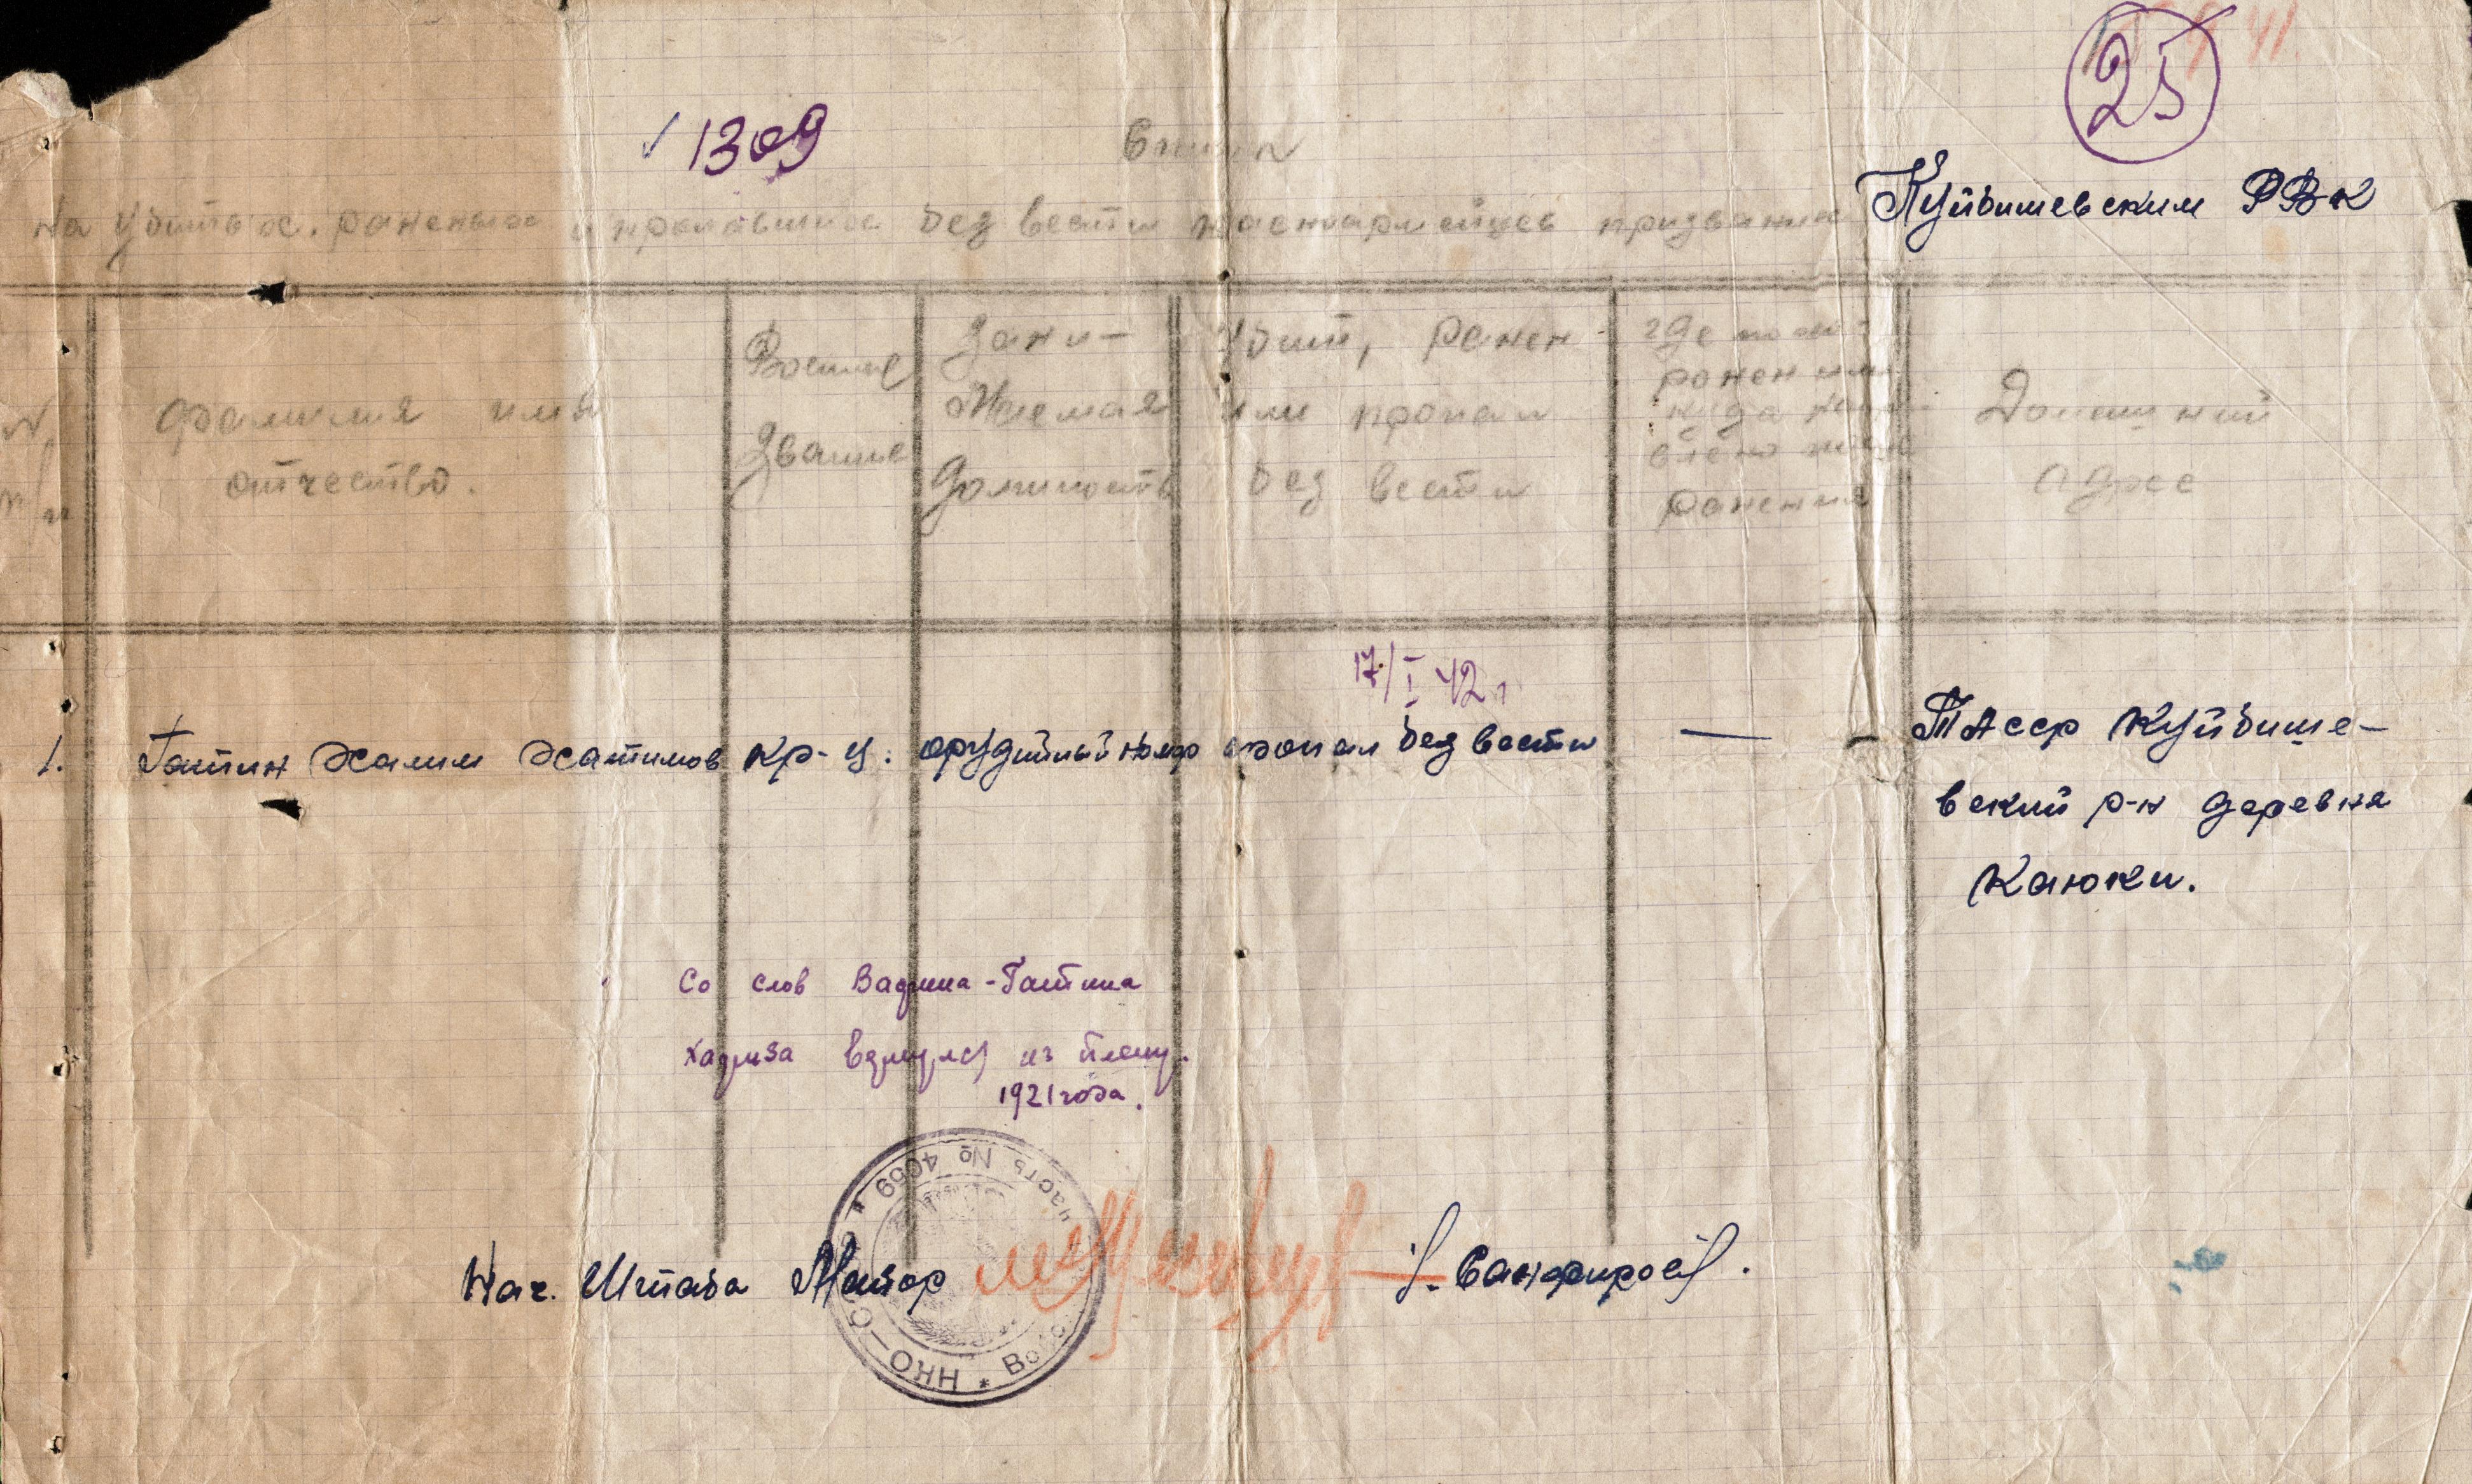 25
1309
Список
на убитых, раненых и пропавших без вести красноармейцев призваных Куйбишевским РВК
№ п/п
Фамилия имя отчество.
Военное Звание
Зани-
жаемая
должность
Убит, ранен
или пропал
без вести
ранен или
куда
ранения
Домашний
Адрес
17/I 42 г
1. Гатин Халим Хатимов кр-ц. орудийный номер пропал без вести — ТАССР Куйбише-
вский р-н деревня
Каюки.
Со слов Гатина
вернулся из плену.
1921 года.
НКО-СССР * Войс часть № 4059
Нач. Штаба Майор Санфиров.